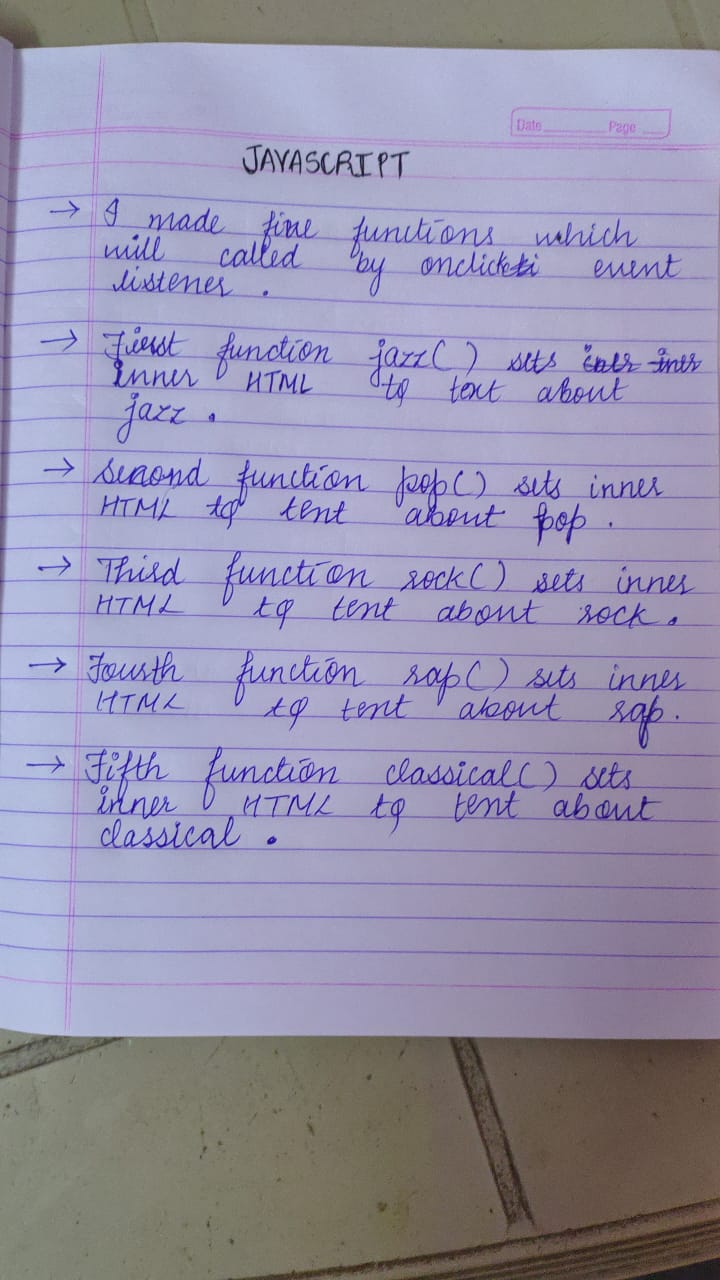 Date Page
JAVASCRIPT
→ I made five functions which
will called by onclick event
listener.
→ First function jazz() sets
inner HTML to text about
jazz.
→ Second function pop() sets inner
HTML to text about pop.
→ Third function rock() sets inner
HTML to text about rock.
→ Fourth function rap() sets inner
HTML to text about rap.
→ Fifth function classical() sets
inner HTML to text about
classical.